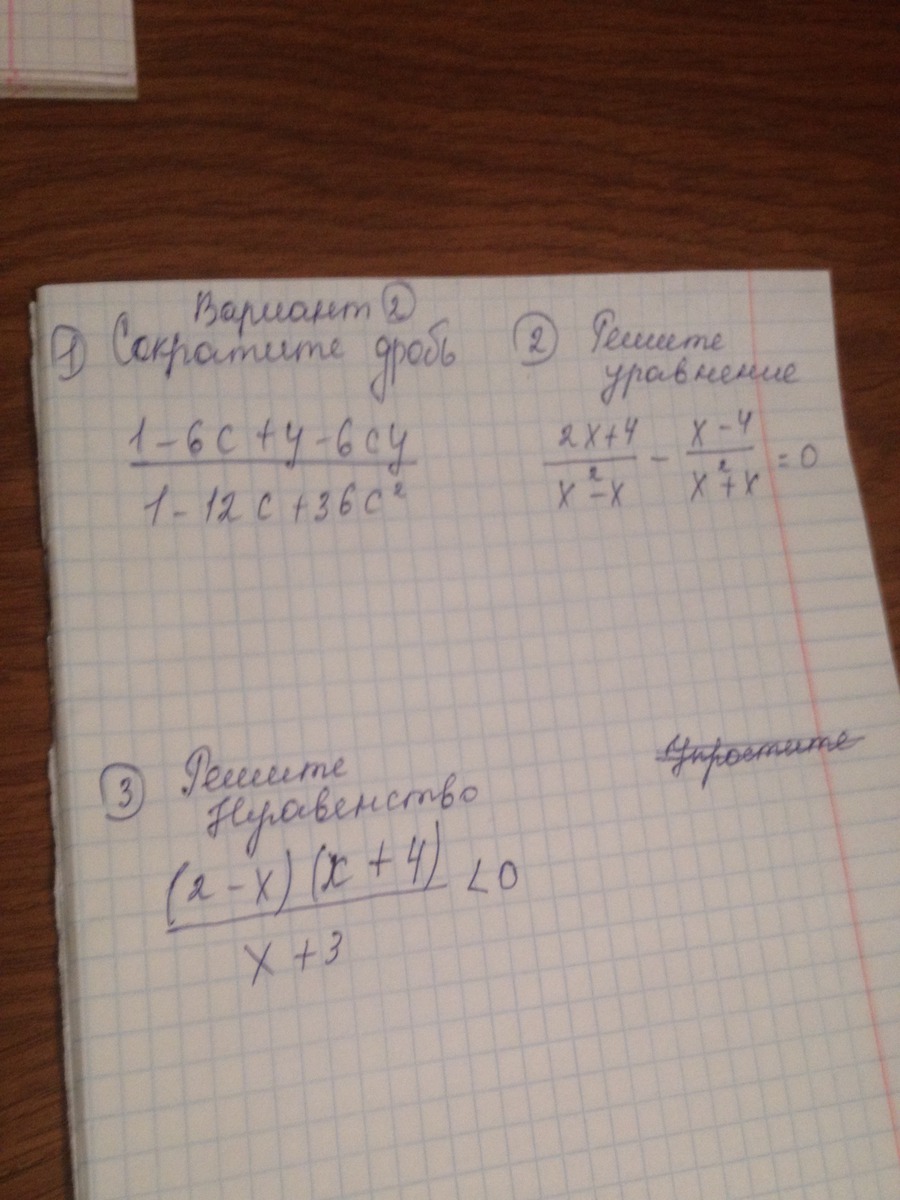 Вариант ②
① Сократите дробь
1 - 6c + y - 6cy
1 - 12c + 36c²
② Решите
уравнение
2x+4 / x²-x - x-4 / x²+x = 0
Упростите
③ Решите
Неравенство
(2-x)(x+4) < 0
x+3